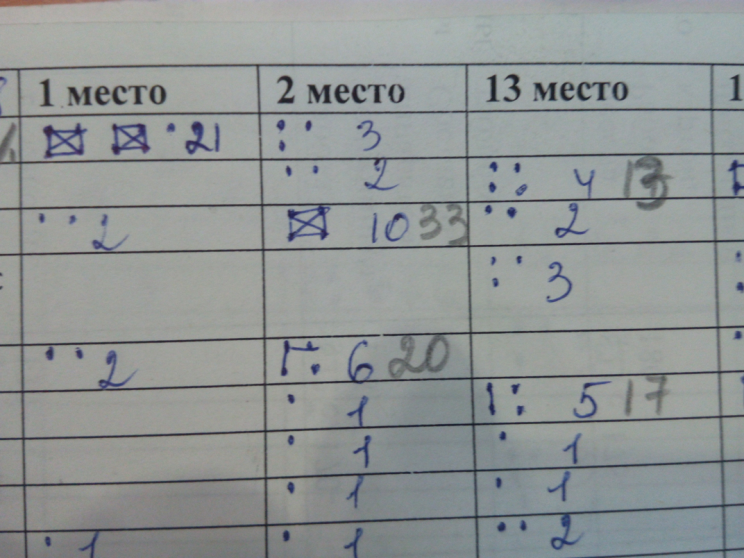 1 место 2 место 13 место 1
21 3
2 4 13
2 10 33 2
3
2 6 20
1 5 17
1 1
1 1
1 1 2